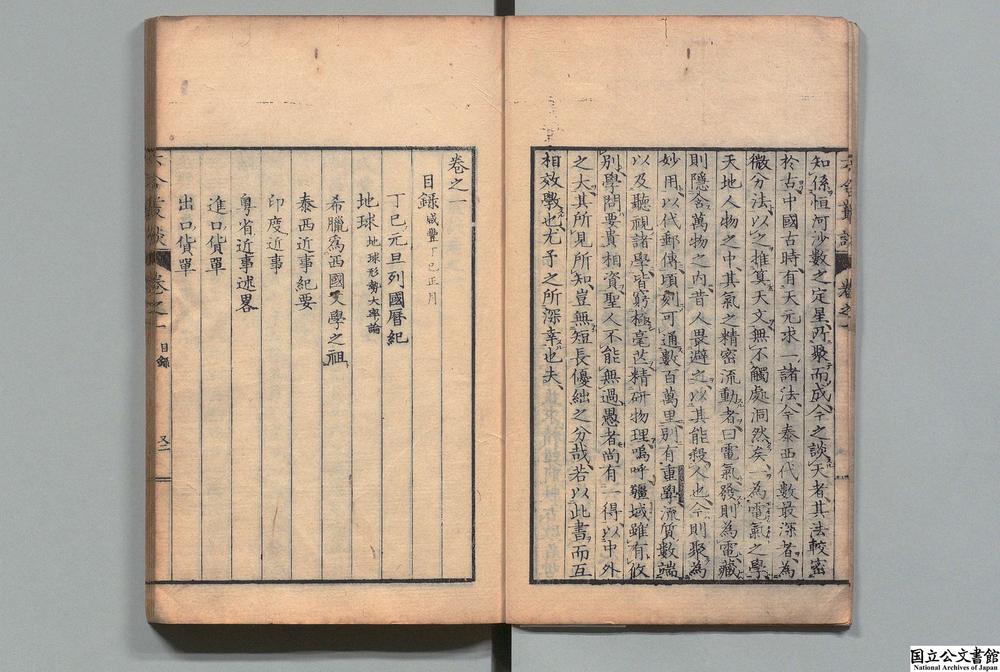 六合叢談
卷之一
知係恒河沙數之定星所聚而成今之談天者其法較密
於古中國古時有天元求一諸法今泰西代數最深者為
微分法以之推算天文無不觸處洞然矣一為電氣之學
天地人物之中其氣之精密流動者曰電氣發則為電藏
則隱含萬物之內昔人畏避之以其能殺人也今則聚為
妙用以代郵傳頃刻可通數百萬里別有重學流質數端
以及聽視諸學皆窮極毫芒精研物理嗚呼疆域雖有攸
別學問要貴相資聖人不能無過愚者尚有一得以中外
之大其所見所知豈無短長優絀之分哉若以此書而互
相效斆也尤予之所深幸也夫
卷之一
目錄 咸豐丁巳正月
丁巳元旦列國曆紀
地球 地球形勢大率論
希臘爲西國文學之祖
泰西近事紀要
印度近事
粵省近事述畧
進口貨單
出口貨單
六合叢談 卷之一 目錄 又二
国立公文書館
National Archives of Japan